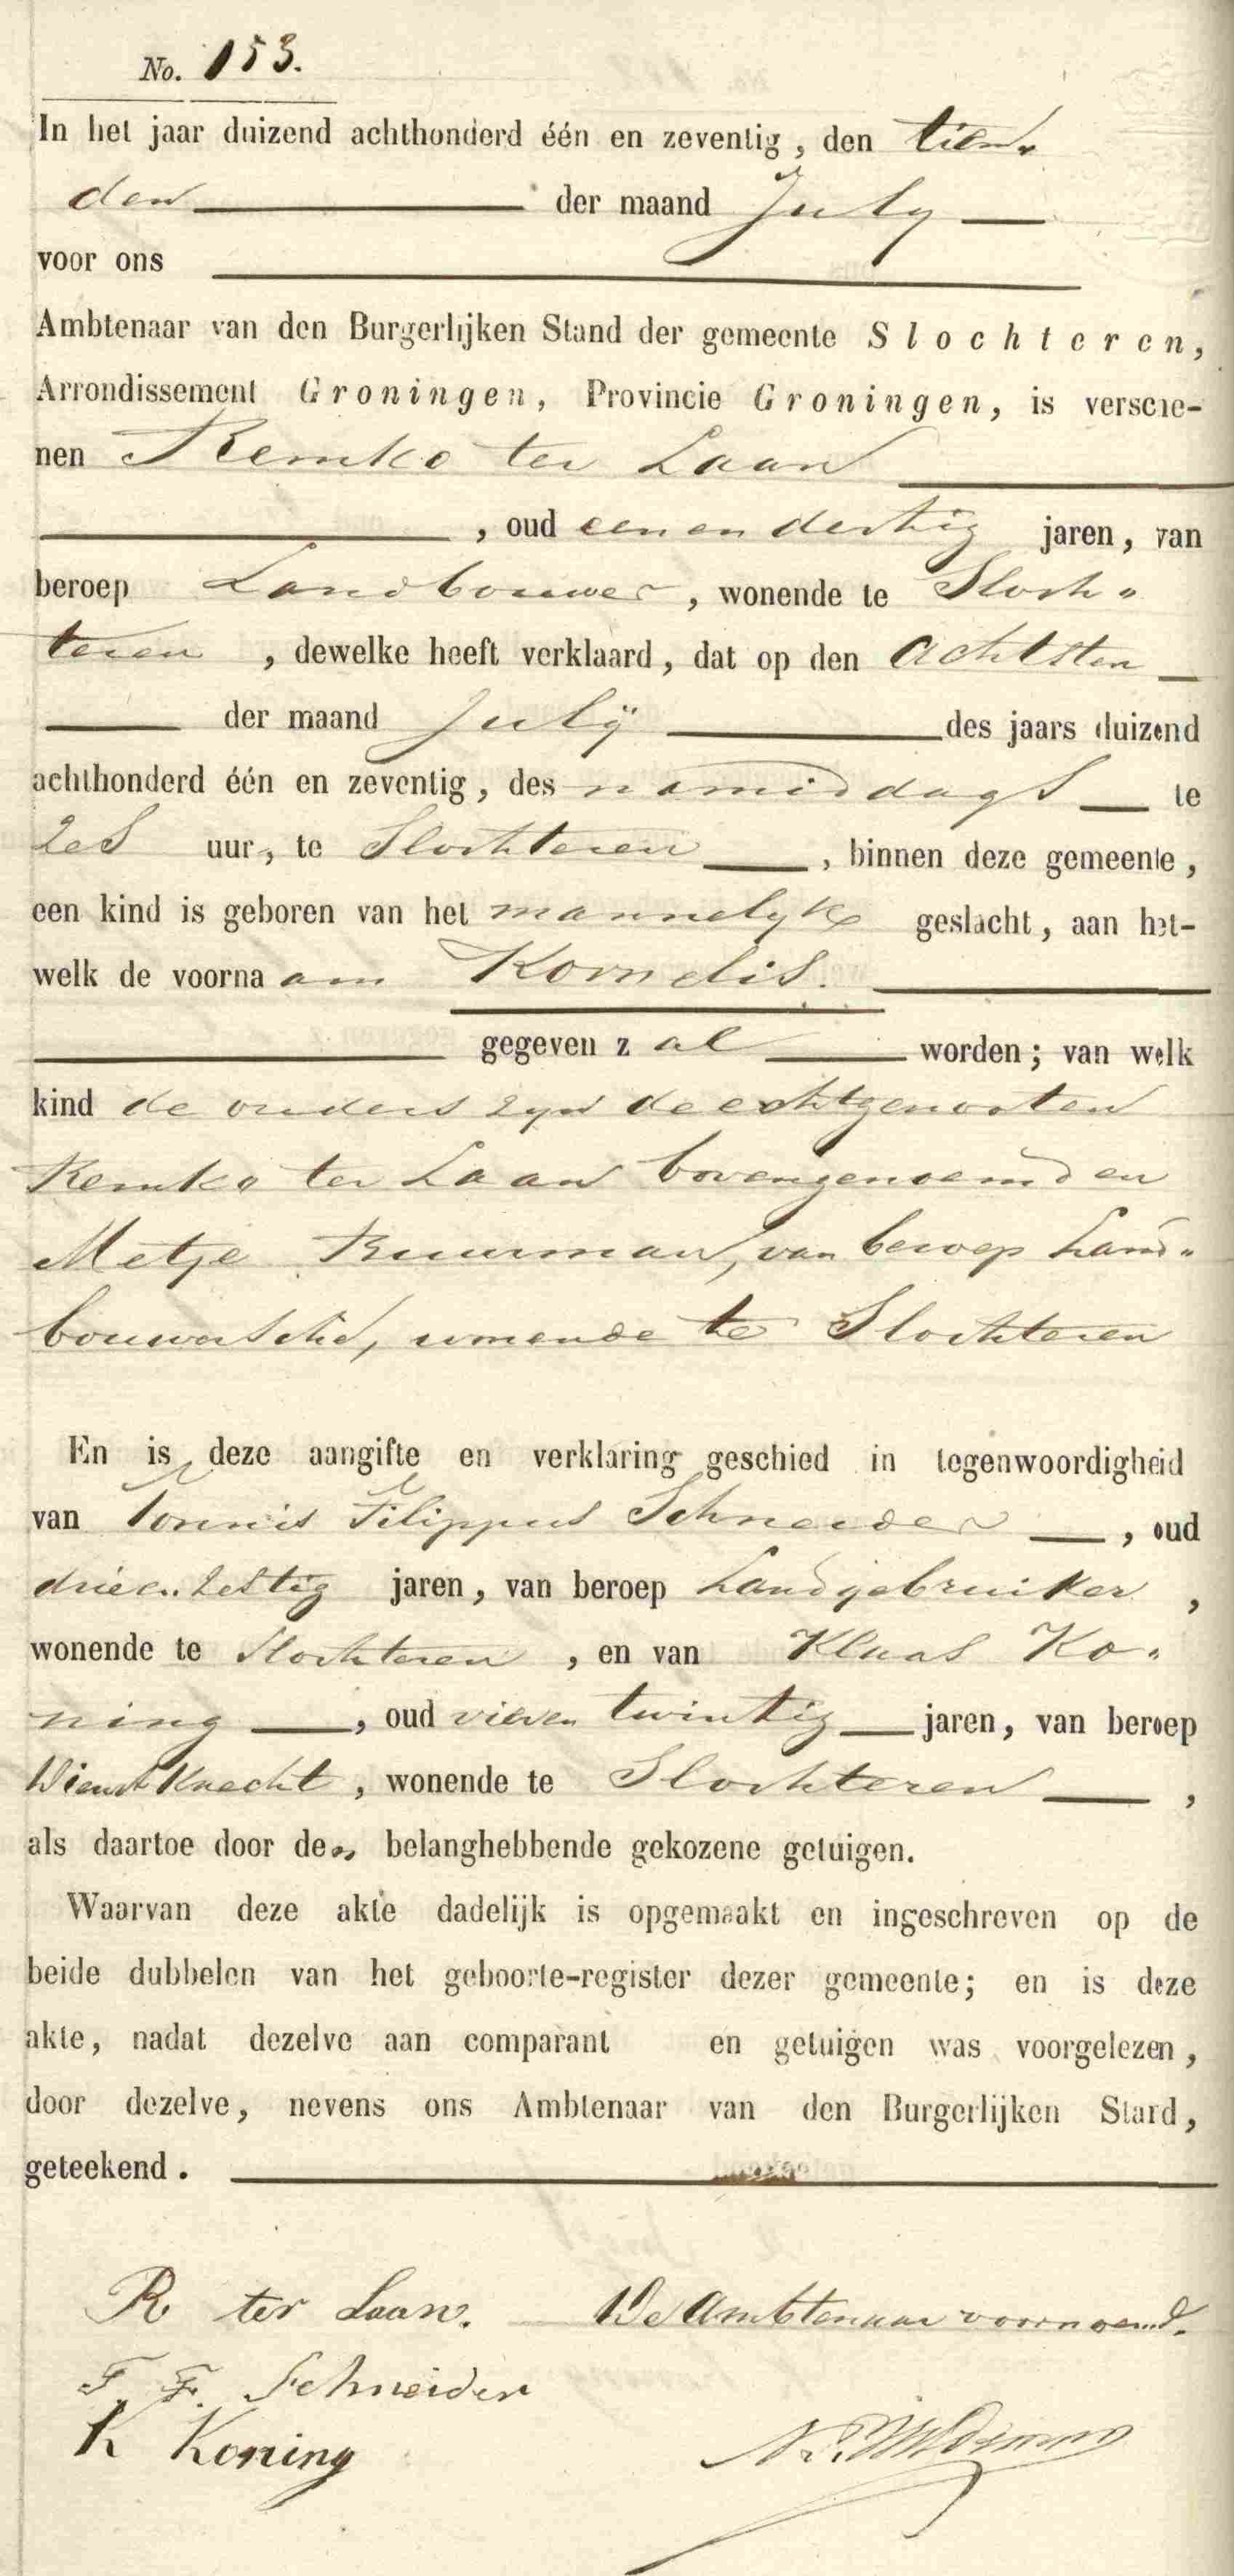 No. 153.
In het jaar duizend achthonderd één en zeventig, den tien-
den der maand July
voor ons
Ambtenaar van den Burgerlijken Stand der gemeente Slochteren,
Arrondissement Groningen, Provincie Groningen, is versche-
nen Remko ter Laan
, oud een en dertig jaren, van
beroep Landbouwer, wonende te Sloch-
teren, dewelke heeft verklaard, dat op den achtsten
der maand July des jaars duizend
achthonderd één en zeventig, des namiddags te
zes uur, te Slochteren, binnen deze gemeente,
een kind is geboren van het mannelyke geslacht, aan het-
welk de voornaam Kornelis.
gegeven zal worden; van welk
kind de ouders zyn de echtgenooten
Remko ter Laan bovengenoemd en
Metje Buurman, van beroep Land-
bouwersche, wonende te Slochteren
En is deze aangifte en verklaring geschied in tegenwoordigheid
van Tonnis Filippus Schneider, oud
drieen zestig jaren, van beroep Landgebruiker,
wonende te Slochteren, en van Klaas Ko-
ning, oud vieren twintig jaren, van beroep
Dienstknecht, wonende te Slochteren,
als daartoe door den belanghebbende gekozene getuigen.
Waarvan deze akte dadelijk is opgemaakt en ingeschreven op de
beide dubbelen van het geboorte-register dezer gemeente; en is deze
akte, nadat dezelve aan comparant en getuigen was voorgelezen,
door dezelve, nevens ons Ambtenaar van den Burgerlijken Stand,
geteekend.
R ter Laan. De Ambtenaar voornoemd.
T. F. Schneider
K Koning